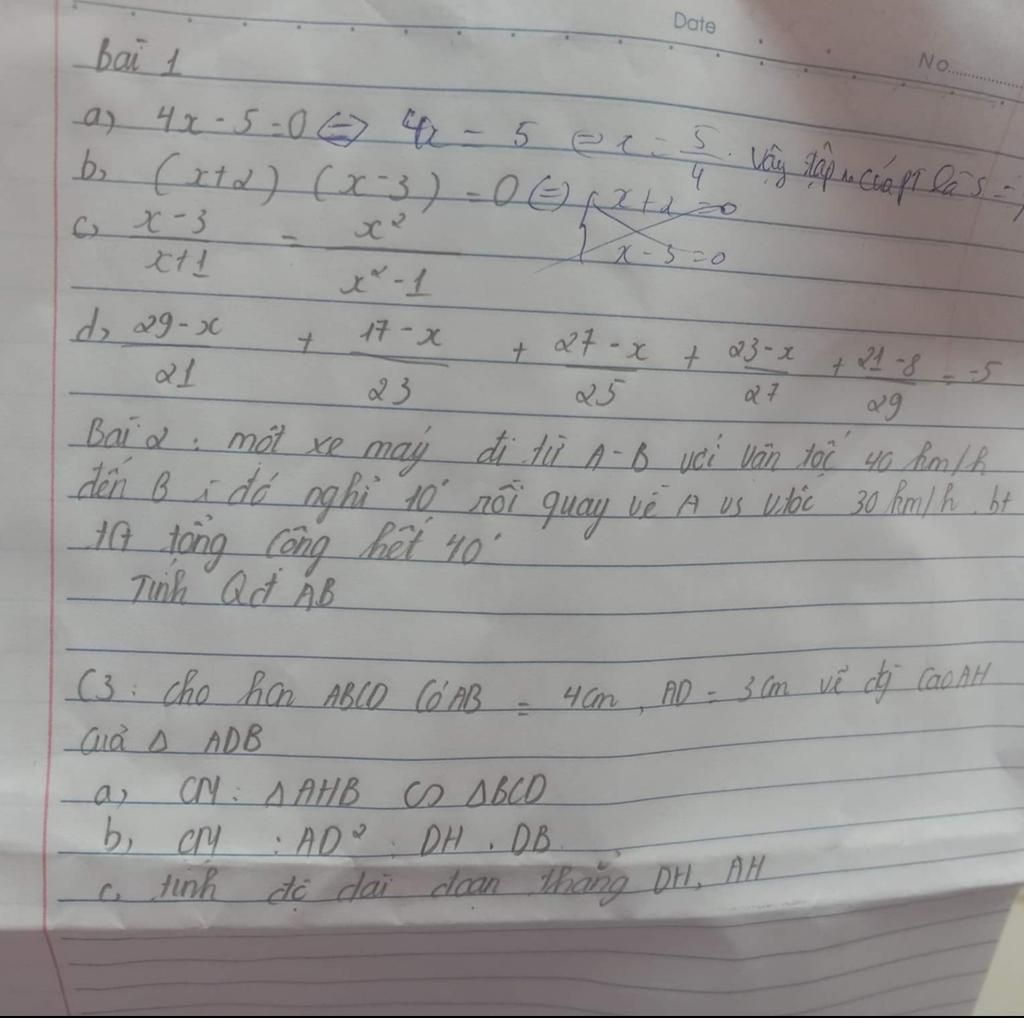 Date
No
Bai 1
a) 4x - 5 = 0 ⇔ 4x = 5 ⇔ x = 5/4. Vậy tập n của PT là S =
b, (x+2) (x-3) = 0 ⇔ [ x+2 = 0
x - 3 = 0
c, (x-3)/(x+1) = x²/(x²-1)
d, (29-x)/21 + (17-x)/23 + (27-x)/25 + (23-x)/27 + (21-8)/29 = -5
Bai 2 : một xe máy đi từ A-B với vân tốc 40 km/h
đến B i đó nghỉ 10' rồi quay về A vs vtôc 30 km/h. bt
tG tổng công hết 40'
Tính Qđ AB
C3 : cho hcn ABCD có AB = 4cm, AD = 3cm vẽ đg cao AH
của Δ ADB
a, CM : Δ AHB ∽ ΔBCD
b, CM : AD² : DH . DB
c, tính độ dài đoạn thẳng DH, AH